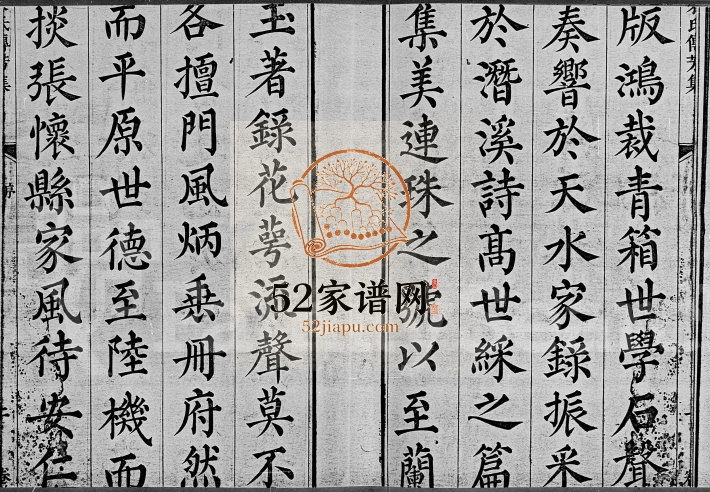 版鴻裁青箱世學石聲
奏響於天水家錄振采
於潛溪詩髙世綵之篇
集美連珠之號以至蘭
玉著錄花萼流聲莫不
各擅門風炳垂冊府然
而平原世德至陸機而
掞張懷縣家風待安仁
52家谱网
52jiapu.com